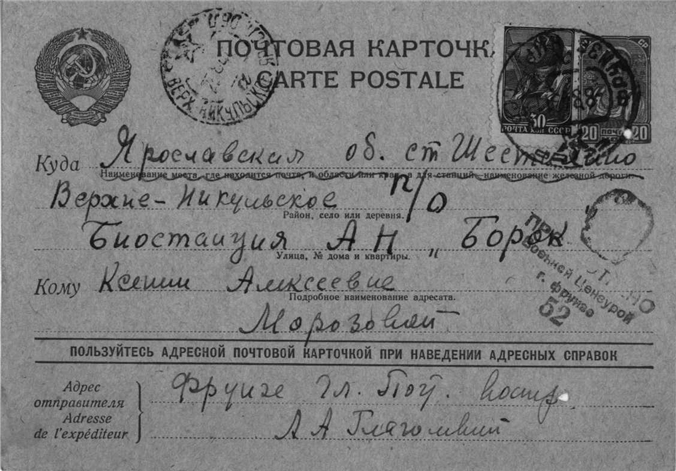 ПОЧТОВАЯ КАРТОЧКА
CARTE POSTALE
30
ПОЧТА СССР
20 ПОЧТА 20
ВЕРХ. НИКУЛЬСКОЕ
Куда Ярославская об. ст Шестихино
Наименование места, где находится почта, и области или края, а для станций наименование железной дороги
Верхне-Никульское п/о
Район, село или деревня.
Биостанция АН „Борок
Улица, № дома и квартиры.
Кому Ксении Алексеевне
Подробное наименование адресата.
Морозовой
Военной Цензурой
г. Фрунзе
52
ПОЛЬЗУЙТЕСЬ АДРЕСНОЙ ПОЧТОВОЙ КАРТОЧКОЙ ПРИ НАВЕДЕНИИ АДРЕСНЫХ СПРАВОК
Адрес отправителя
Adresse de l'expéditeur
Фрунзе Гл. Почт.
АА